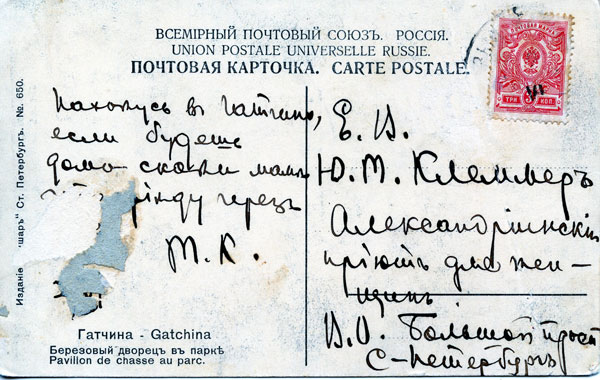 ВСЕМІРНЫЙ ПОЧТОВЫЙ СОЮЗЪ. РОССІЯ.
UNION POSTALE UNIVERSELLE RUSSIE.
ПОЧТОВАЯ КАРТОЧКА. CARTE POSTALE.
ТРИ КОП.
Нахожусь въ Гатчино,
если будешь
дома скажи маме
черезъ
М. К.
Е. В.
Ю. М. Клеммеръ
Александрiинскiй
прiютъ для жен-
щинъ
В. О. Большой просп
С-Петербургъ
Гатчина - Gatchina
Березовый дворецъ въ паркѣ
Pavillon de chasse au parc.
Изданіе "шаръ" Ст. Петербургъ. № 650.